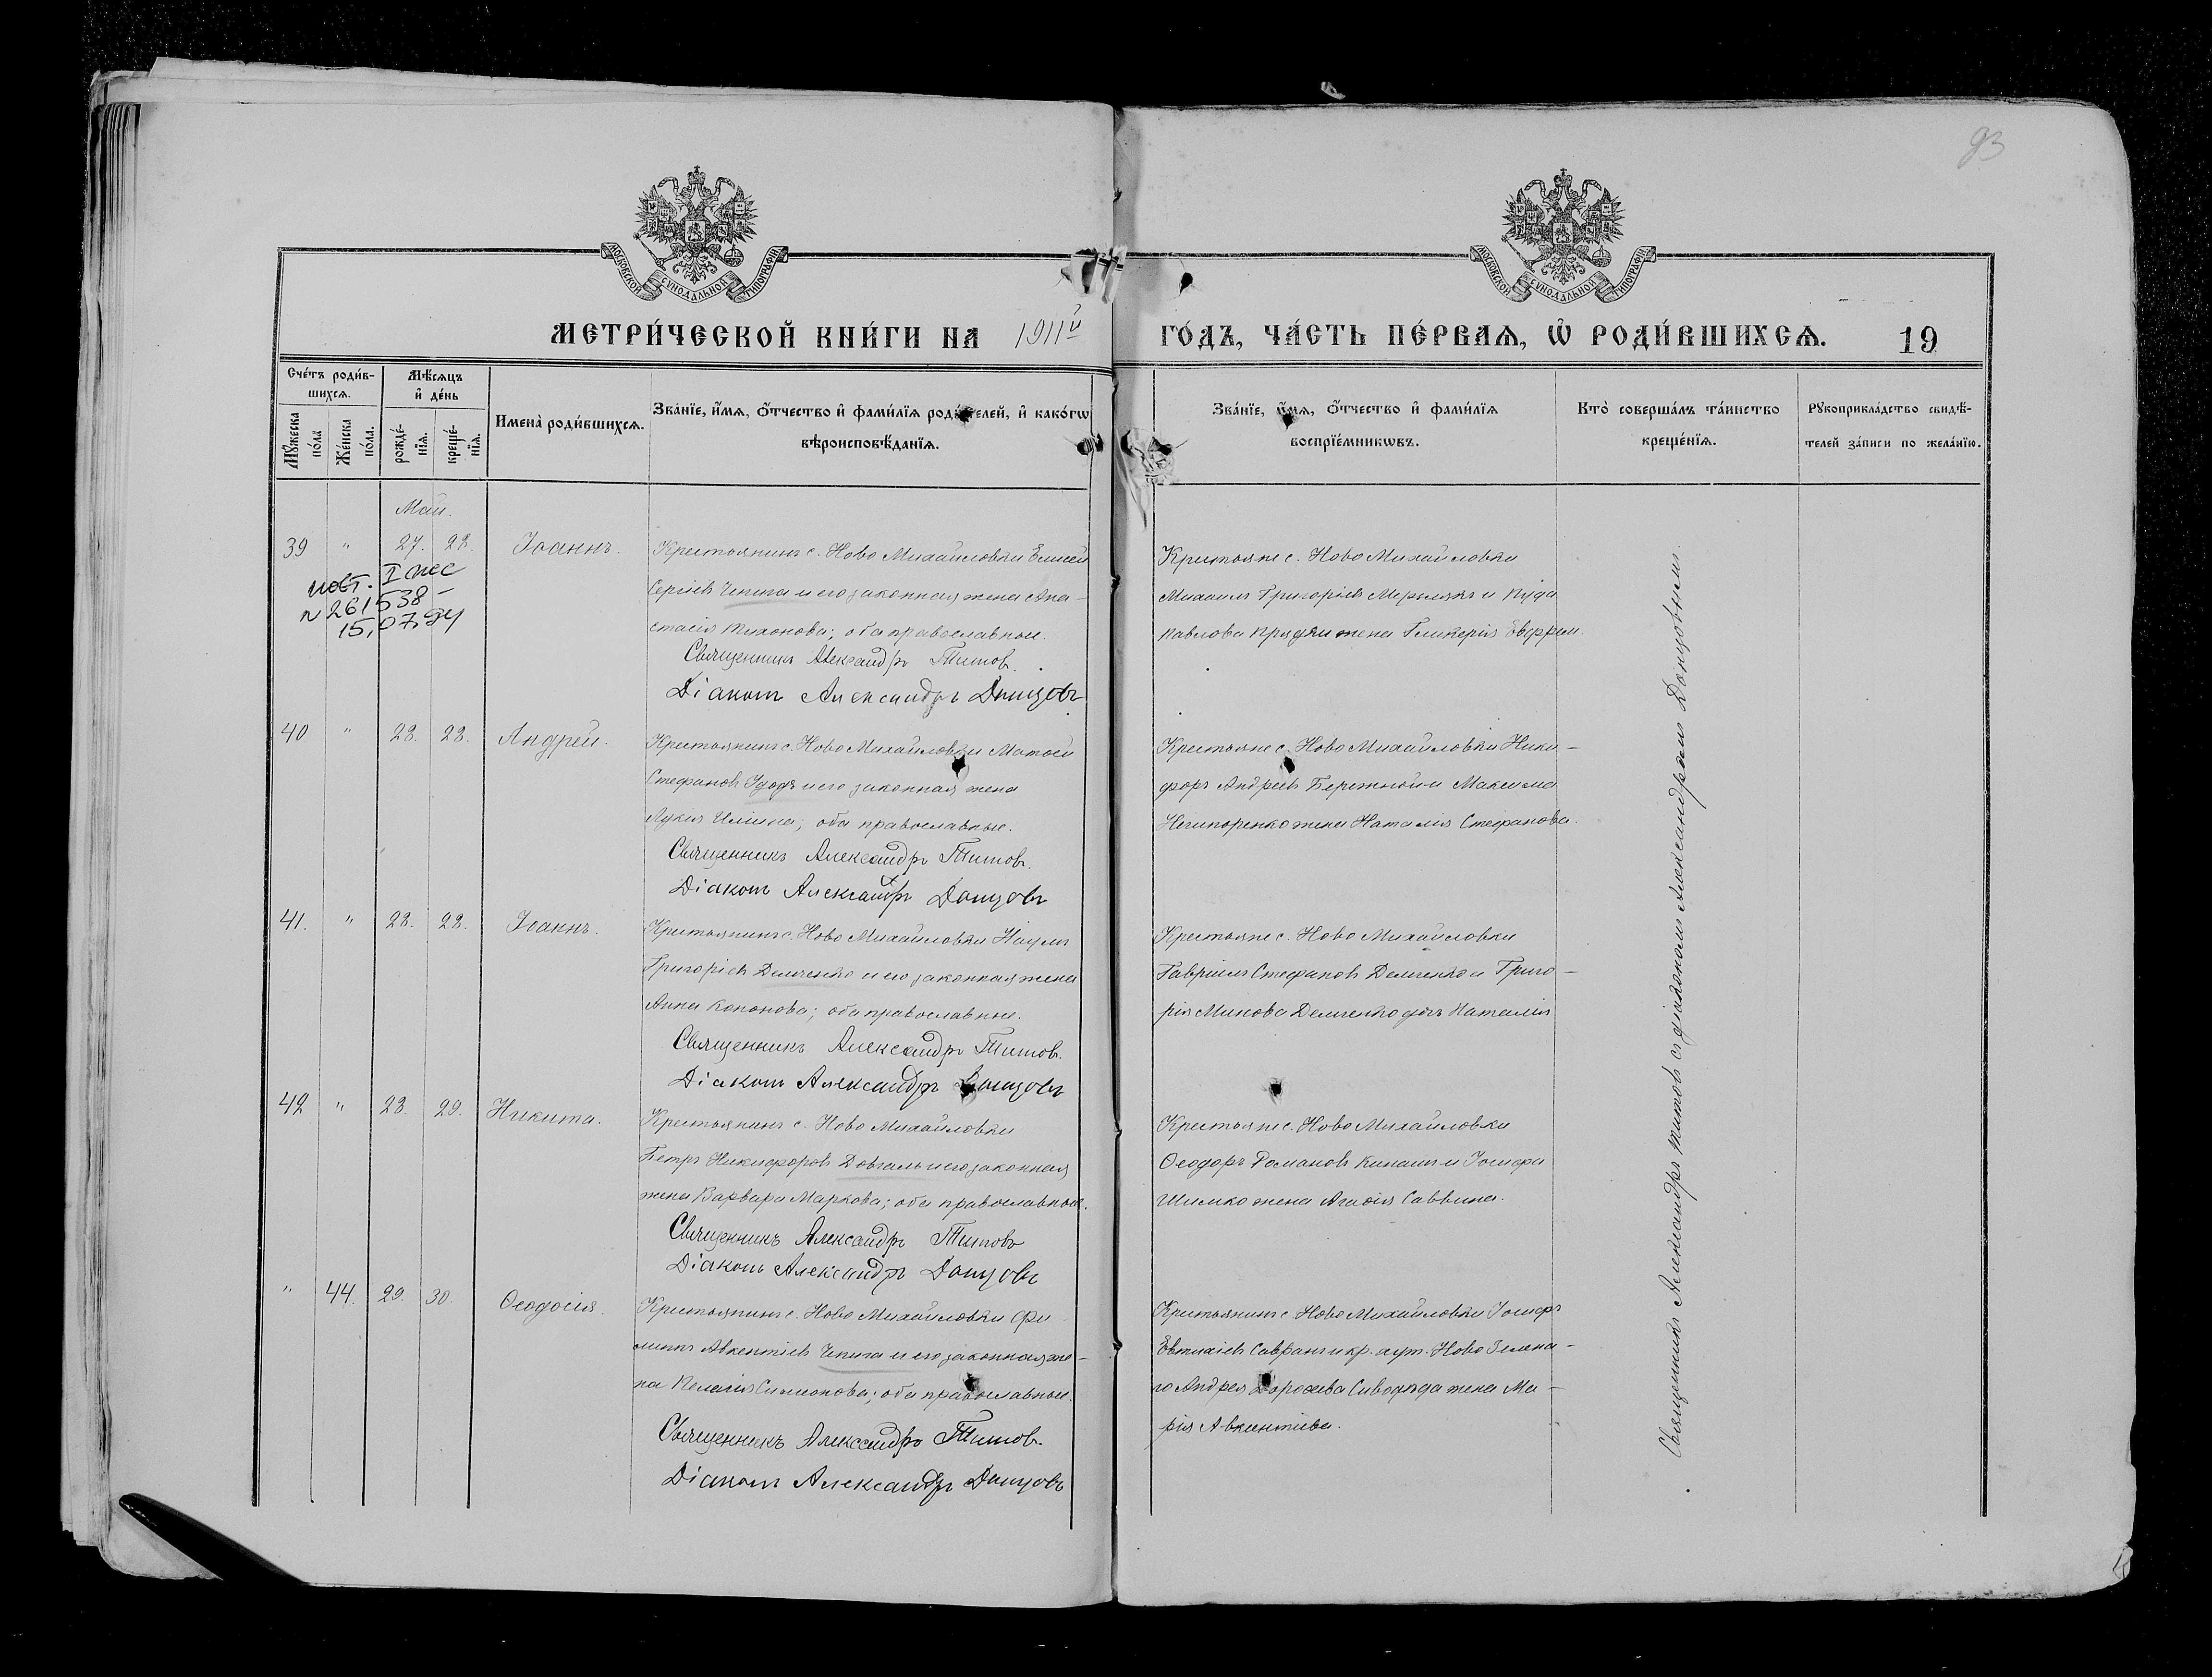 93
МОСКОВСКОЙ СѴНОДАЛЬНОЙ ТИПОГРАФІИ
МОСКОВСКОЙ СѴНОДАЛЬНОЙ ТИПОГРАФІИ
МЕТРИ́ЧЕСКОЙ КНИ́ГИ НА 1911й ГО́ДЪ, ЧА́СТЬ ПЕ́РВАѦ, Ѡ҆ РОДИ́ВШИХСѦ. 19
Сче́тъ роди́в-
шихсѧ.
Мꙋ́жеска по́ла
Же́нска по́ла.
Мѣ́сѧцъ
и҆ де́нь
рожде́-нїѧ.
креще́-нїѧ.
Имена̀ роди́вшихсѧ.
Зва́нїе, и҆́мѧ, ѻ҆́тчество и҆ фами́лїѧ роди́телей, и҆ како́гѡ
вѣроисповѣ́данїѧ.
Зва́нїе, и҆́мѧ, ѻ҆́тчество и҆ фами́лїѧ
воспрїе́мникѡвъ.
Кто̀ соверша́лъ та́инство
креще́нїѧ.
Рꙋкоприкла́дство свидѣ́-
телей за́писи по жела́нїю.
Май.
39 " 27. 28. Іоаннъ.
Крестьянинъ с. Ново Михайловки Елисей
Сергіевъ Чепига и его законная жена Ана-
стасія Тихонова; оба православные.
Священникъ Александръ Титовъ.
Діаконъ Александръ Донцовъ
Крестьяне с. Ново Михайловки
Михаилъ Григорьевъ и
Павлова жена Гликерія
I
N 261538 -
15,07,94
40 " 28. 28. Андрей.
Крестьянинъ с. Ново Михайловки Матѳей
Стефановъ Удодъ и его законная жена
Лукія Ильина; оба православные.
Священникъ Александръ Титовъ.
Діаконъ Александръ Донцовъ
Крестьяне с. Ново Михайловки Ники-
форъ Андреевъ Бережной и Максима
Нечипоренко жена Наталія Стефанова.
41. " 28. 28. Іоаннъ.
Крестьянинъ с. Ново Михайловки Наумъ
Григоріевъ Демченко и его законная жена
Анна Кононова; оба православные.
Священникъ Александръ Титовъ.
Діаконъ Александръ Донцовъ
Крестьяне с. Ново Михайловки
Гавріилъ Стефановъ Демченко и Григо-
рія Минова Демченко дочь Наталія
42 " 28. 29. Никита.
Крестьянинъ с. Ново Михайловки
Петръ Никифоровъ Довгаль и его законная
жена Варвара Маркова; оба православные.
Священникъ Александръ Титовъ
Діаконъ Александръ Донцовъ
Крестьяне с. Ново Михайловки
Ѳеодоръ Романовъ и Іосифа
Шимко жена Агаѳія Саввина.
" 44. 29. 30. Ѳеодосія.
Крестьянинъ с. Ново Михайловки Фи-
липпъ Авкентіевъ Чепига и его законная же-
на Пелагія Симонова; оба православные.
Священникъ Александръ Титовъ.
Діаконъ Александръ Донцовъ
Крестьянинъ с. Ново Михайловки Іосифъ
Евтихіевъ Савранъ и кр. хут. Ново Зелена-
го Андрея Дорофеева жена Ма-
рія Авкентіева.
Священникъ Александръ Титовъ съ діакономъ Александромъ Донцовымъ.